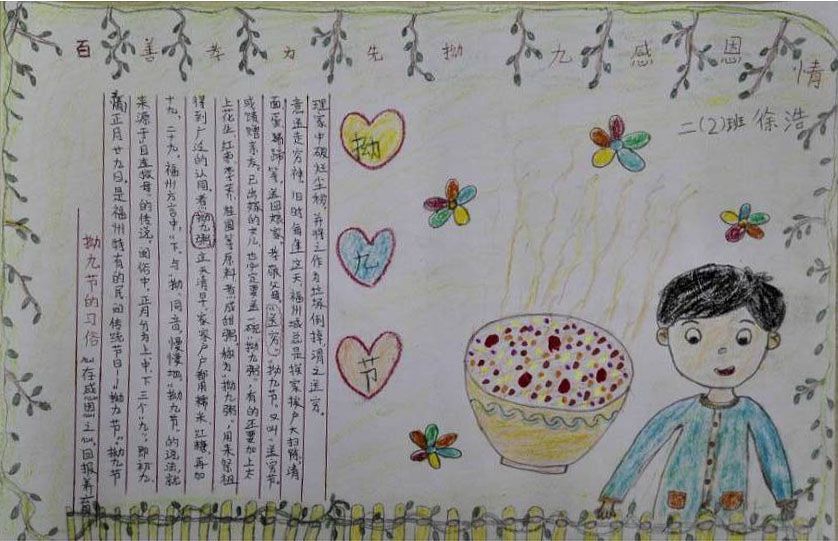 百善孝为先拗九感恩情
二(2)班 徐浩
拗
九
节
拗九节的习俗
心在感恩之心回报养育
正月廿九日,是福州特有的民间传统节日——"拗九节"。拗九节
来源于目连救母的传说。闽俗中,正月分为上中下三个"九",即初九、
十九、二十九。福州方言中,"下"与"拗"同音,慢慢地,"拗九节"的说法就
得到广泛的认同。看"拗九粥"这天清早,家家户户都用糯米、红糖,再加
上花生、红枣、荸荠、桂圆等原料煮成甜粥,称为"拗九粥",用来祭祖
或馈赠亲友。已出嫁的女儿,也必定要送一碗"拗九粥",有的还要加上太
面、蛋、蹄膀等,送回娘家,孝敬父母。(送穷)拗九节,又叫"送穷节"
意送走穷神。旧时每逢这天福州城总是挨家挨户大扫除,清
理家中破烂尘秽,并将之作为垃圾倒掉,谓之送穷。